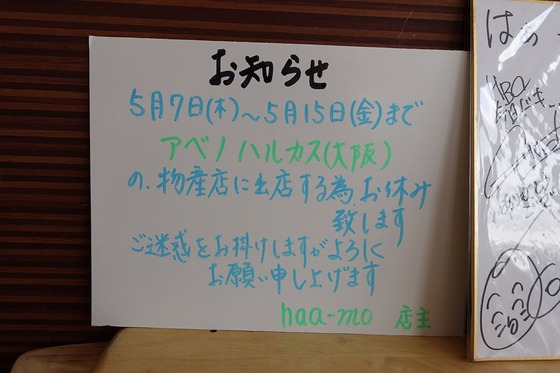 お知らせ
5月7日(木)～5月15日(金)まで
アベノハルカス(大阪)
の、物産店に出店する為お休み
致します
ご迷惑をお掛けしますがよろしく
お願い申し上げます
haa-mo 店主
はぁ
HBO